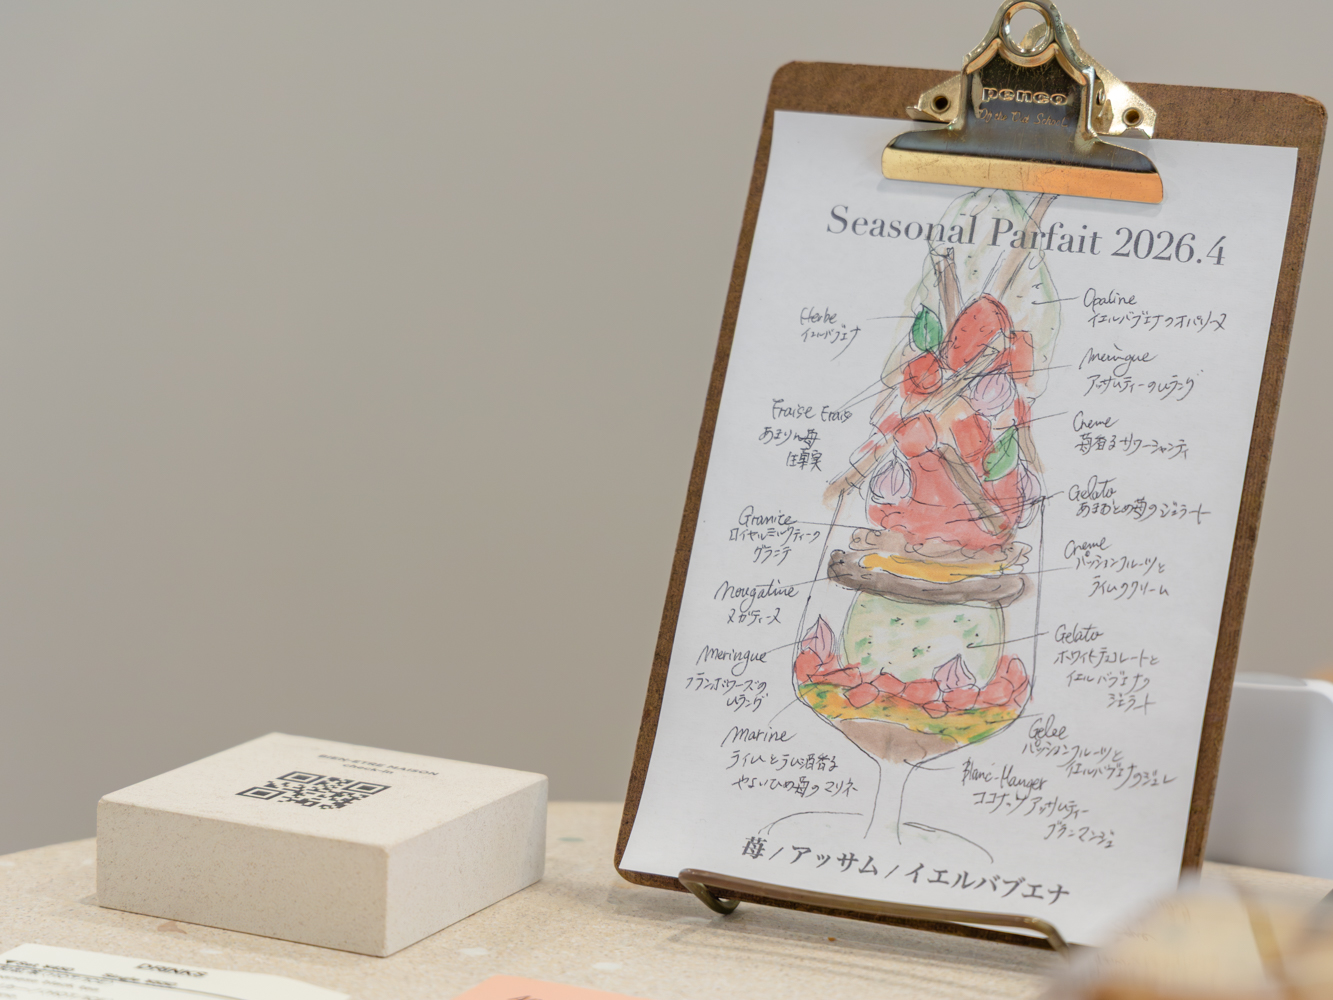 penco
Seasonal Parfait 2026.4
Herbe
イエルバブエナ
Fraise Frais
あまりん苺
Granite
ロイヤルミルクティーの
グラニテ
Nougatine
ヌガティーヌ
Meringue
フランボワーズの
ムラング
Marine
ライムとラム酒香る
やよいひめ苺のマリネ
Opaline
イエルバブエナのオパリーヌ
Meringue
アッサムティーのムラング
Creme
苺香るサワーシャンティ
Gelato
あまおとめ苺のジェラート
Creme
パッションフルーツと
ライムのクリーム
Gelato
ホワイトチョコレートと
イエルバブエナの
ジェラート
Gelee
パッションフルーツと
イエルバブエナのジュレ
Blanc-Manger
ココナッツアッサムティー
ブランマンジェ
苺 / アッサム / イエルバブエナ
BIEN-ETRE MAISON
check-in
DRINKS